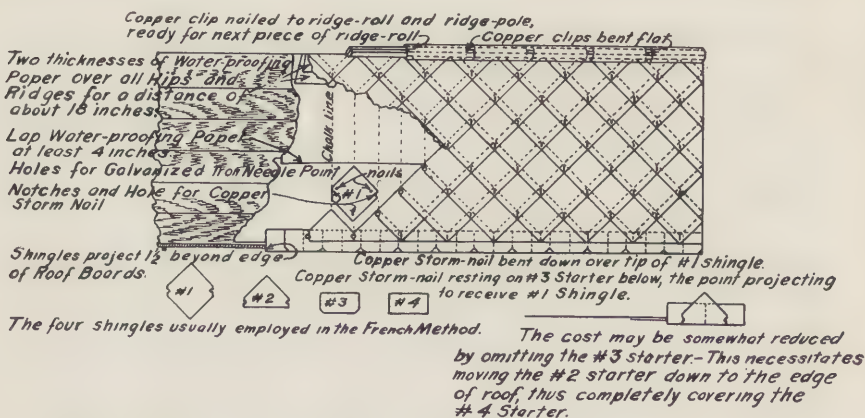 Copper clip nailed to ridge-roll and ridge-pole,
ready for next piece of ridge-roll
Copper clips bent flat
Two thicknesses of Water-proofing
Paper over all Hips and
Ridges for a distance of
about 18 inches
Chalk-line
Lap Water-proofing Paper
at least 4 inches
Holes for Galvanized Iron Needle Point nails
Notches and Hole for Copper
Storm Nail
#1
Shingles project 1½" beyond edge
of Roof Boards.
Copper Storm-nail bent down over tip of #1 shingle.
Copper Storm-nail resting on #3 Starter below, the point projecting
to receive #1 Shingle.
#1
#2
#3
#4
The four shingles usually employed in the French Method.
The cost may be somewhat reduced
by omitting the #3 starter.- This necessitates
moving the #2 starter down to the edge
of roof, thus completely covering the
#4 Starter.